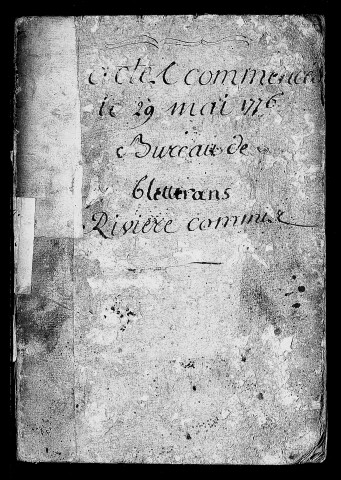 actes commencés
le 29 mai 1776
Bureau de
bletterans
Riviere commis